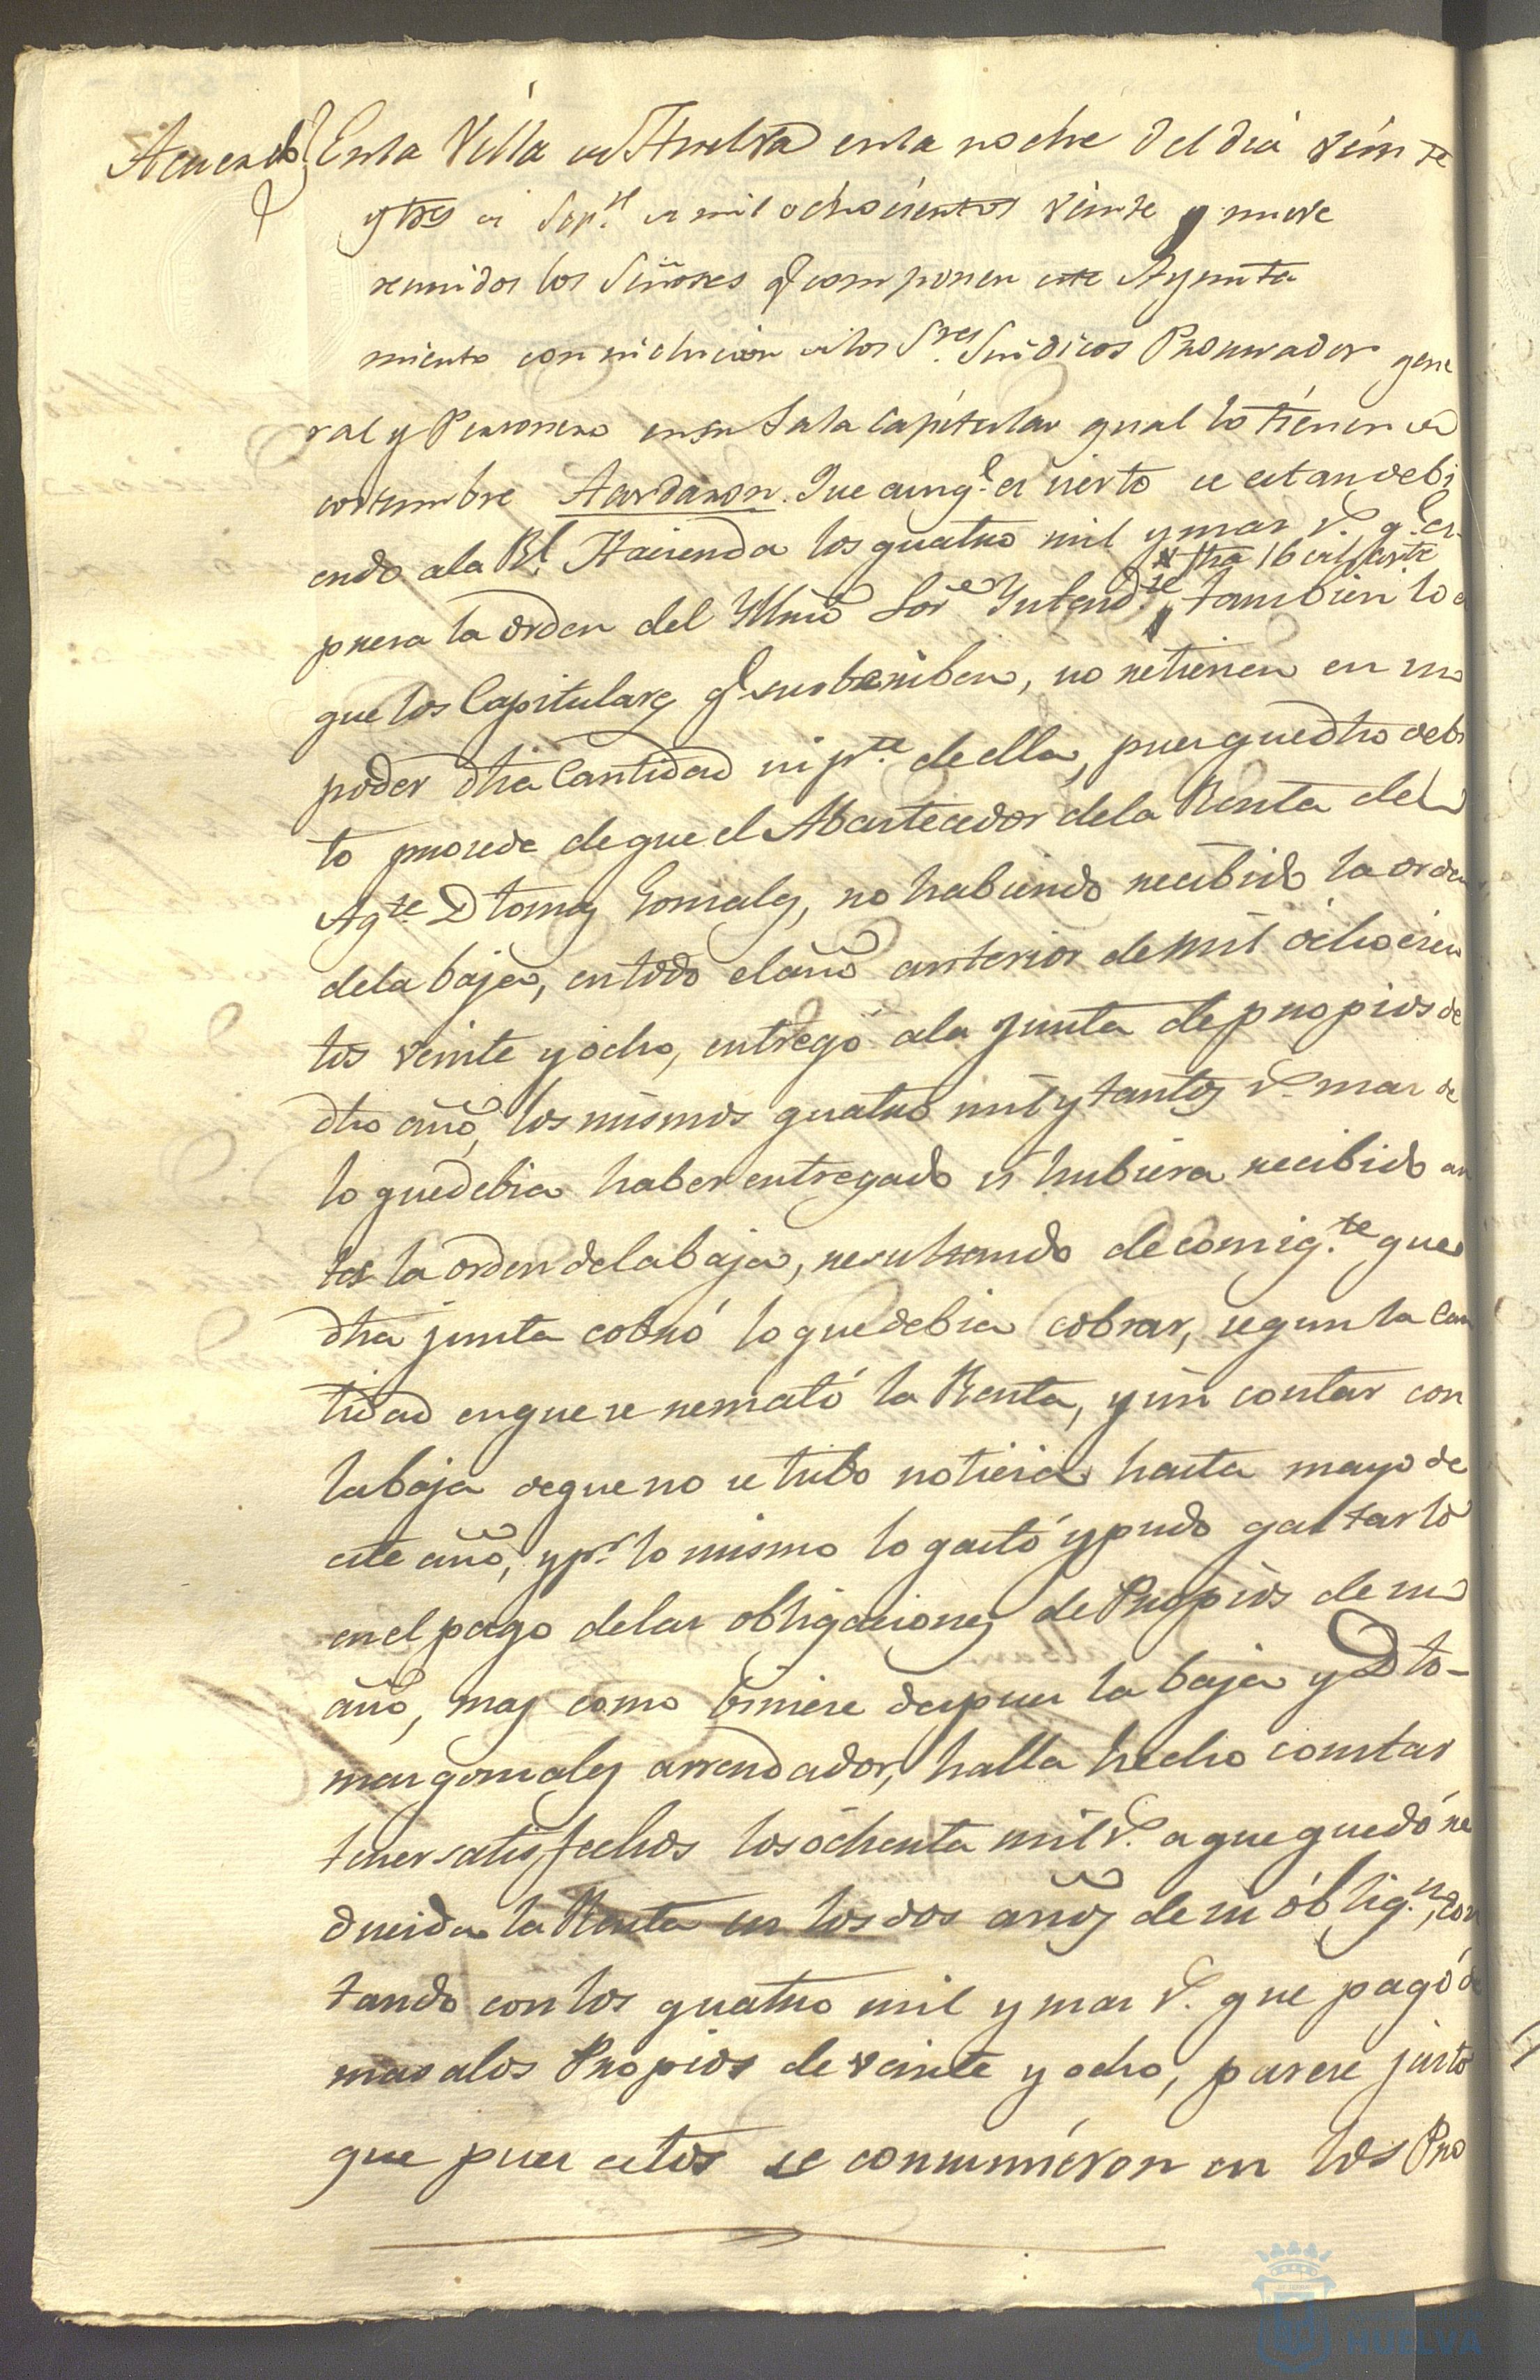 Acuerdo En la Villa de Huelva en la noche del dia vein te
y tres de Sep.e de mil ochocientos veinte y nueve
reunidos los Señores q.e componen este Ayunta
miento con inclusion de los S.res Sindicos Procurador gene
ral y Personero en su Sala Capitular qual lo tienen de
costumbre Acordaron. Que aunq.e es cierto se estan debi
endo ala Rl. Hacienda los quatro mil y mas r.s q.e es-
fha 16 del corr.te
presa la orden del Yllmõ Sor Yntend.te, tambien lo es
que los Capitulares q.e subscriben, no retienen en su
poder dha Cantidad ni p.te de ella, pues que dho debi
to procede de que el Abastecedor dela Renta del
Ag.te D Tomas Gonzales, no habiendo recibido la orden
dela baja, en todo el año anterior de mil ochocien
tos veinte y ocho, entregó ala Junta de propios de
dho año, los mismos quatro mil y tantos r.s mas de
lo que debia haber entregado si hubiera recibido an
tes la orden dela baja, resultando de consig.te que
dha junta cobró lo que debia cobrar, segun la Can
tidad en que se remató la Renta, y sin contar con
la baja de que no se tubo noticia hasta mayo de
este año, y p.r lo mismo lo gastó y pudo gastarlo
en el pago delas obligaciones de Propios de su
año, mas como biniese despues la baja y D To-
mas gonzales arrendador, halla hecho constar
tener satisfechos los ochenta mil r.s a que quedó re
ducida la Renta en los dos años de su oblig.n, con
tando con los quatro mil y mas r.s que pagó de
mas alos Propios de veinte y ocho, parece justo
que pues estos se consumieron en los Pro
HUELVA